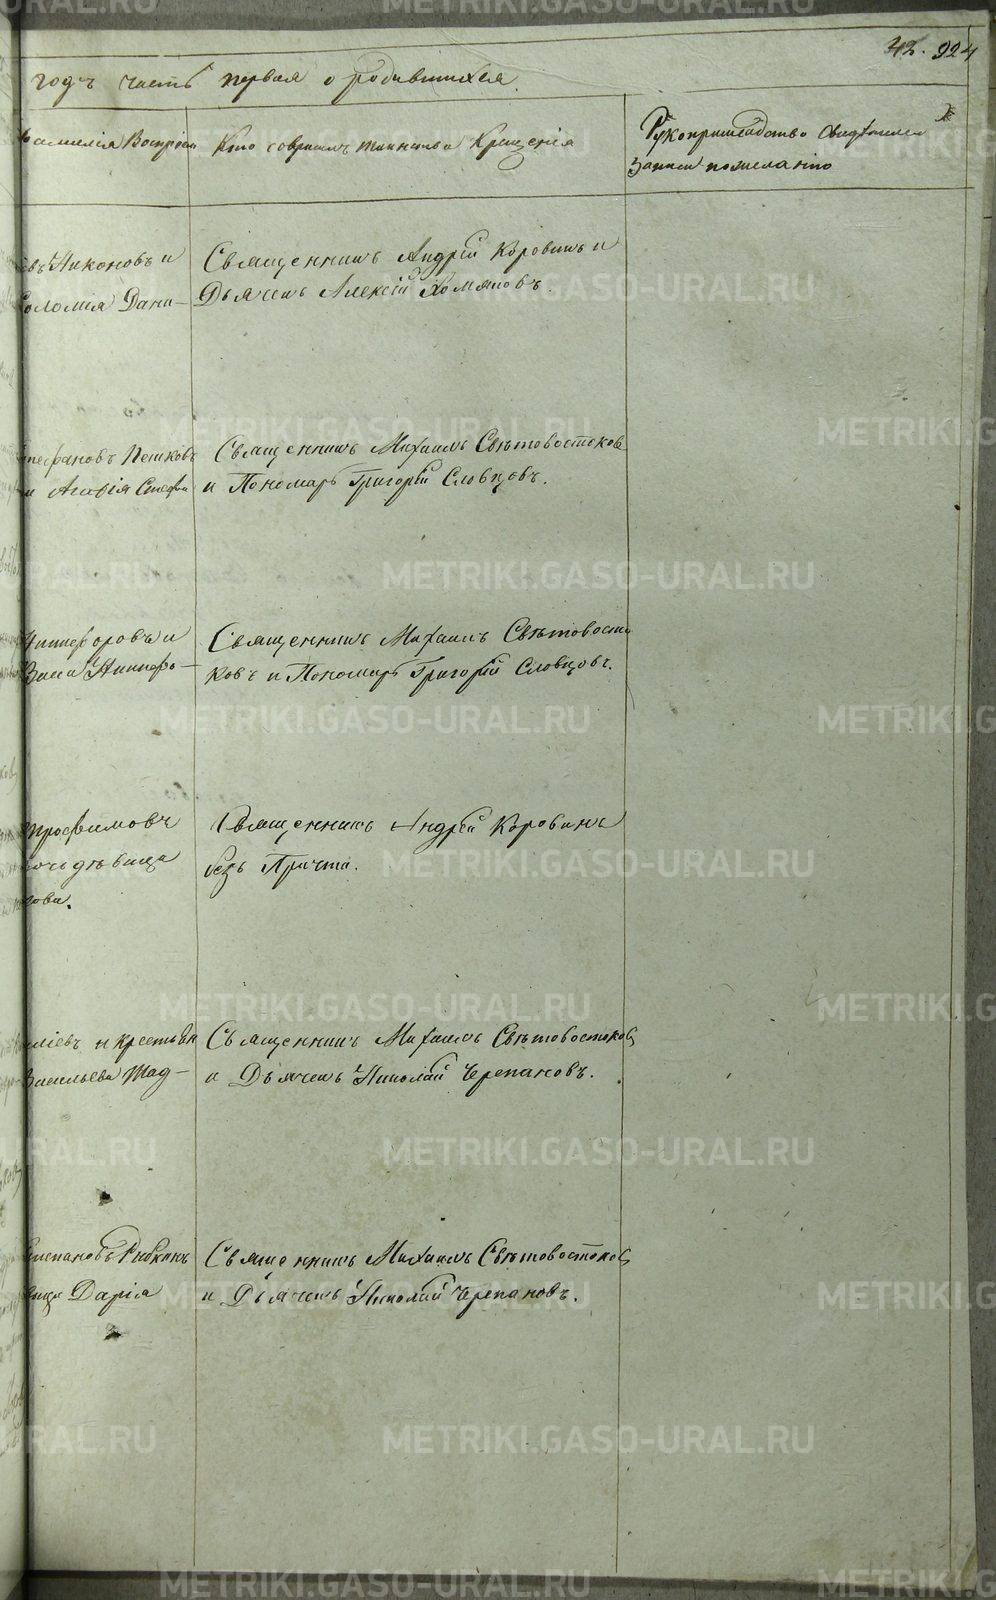 42. 924
годъ часть первая о родившихся.
фамилія Воспріем
Кто совершалъ таинство Крещенія
Рукоприкладство свидѣтелей
записи по желанію
евъ Никоновъ и
Соломія Дани-
Священникъ Андрей Коровинъ и
Дьячекъ Алексій Хомяковъ.
Стефановъ Пешковъ
и Агафія Стефа
Священникъ Михаилъ Свѣтовостоковъ
и Пономарь Григорій Словцовъ.
Никифоровъ и
Никифо-
Священникъ Михаилъ Свѣтовосто
ковъ и Пономарь Григорій Словцовъ.
трофимовъ
дочь дѣвица
кова.
Священникъ Андрей Коровинъ
безъ Причта.
силіевъ и крестьян
Васильева
Священникъ Михаилъ Свѣтовостоковъ
и Дьячекъ Николай Черепановъ.
Степановъ Рыбкинъ
вица Дарія
Священникъ Михаилъ Свѣтовостоковъ
и Дьячекъ Николай Черепановъ.
METRIKI.GASO-URAL.RU